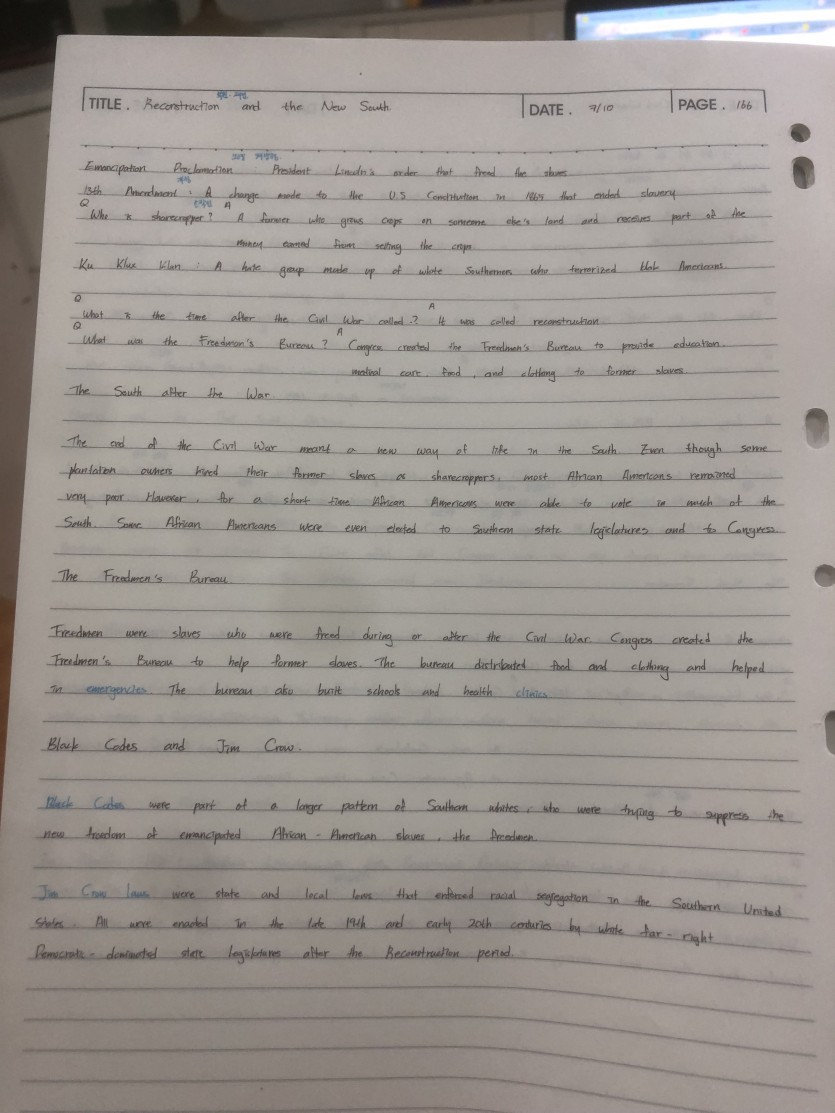 TITLE. Reconstruction and the New South. DATE. 7/10 PAGE. 166
Emancipation Proclamation : President Lincoln's order that freed the slaves
13th Amendment : A change made to the U.S Constitution in 1865 that ended slavery
Q A
Who is sharecropper? A farmer who grows crops on someone else's land and receives part of the
money earned from selling the crops
Ku Klux Klan : A hate group made up of white Southerners who terrorized Americans.
Q A
What is the time after the Civil War called? It was called reconstruction
Q A
What was the Freedmen's Bureau? Congress created the Freedmen's Bureau to provide education.
medical care, food, and clothing to former slaves.
The South after the War
The end of the Civil War meant a new way of life in the South Even though some
plantation owners hired their former slaves as sharecroppers, most African Americans remained
very poor However, for a short time African Americans were able to vote in much of the
South. Some African Americans were even elected to Southern state legislatures and to Congress
The Freedmen's Bureau
Freedmen were slaves who were freed during or after the Civil War. Congress created the
Freedmen's Bureau to help former slaves. The bureau distributed food and clothing and helped
in emergencies The bureau also built schools and health clinics
Black Codes and Jim Crow.
Black Codes were part of a larger pattern of Southern whites, who were trying to suppress the
new freedom of emancipated African-American slaves, the freedmen
Jim Crow laws were state and local laws that enforced racial segregation in the Southern United
States. All were enacted in the late 19th and early 20th centuries by white far-right
Democratic-dominated state legislatures after the Reconstruction period.